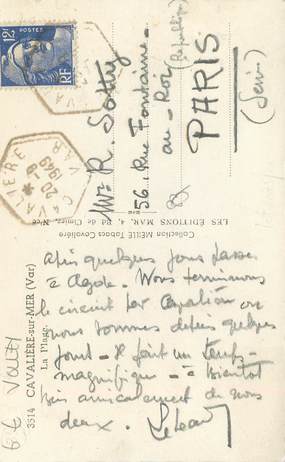 POSTES
12F
RF
CAVALIERE
20 -8
1949
VAR
Mr. R. Sotty
56, Rue Fontaine-
au-Roi (République)
PARIS
(Seine)
Collection MERLE Tabacs Cavalière
LES ÉDITIONS MAR, 4, Bd de Cimiez, Nice
3514 CAVALIÈRE-sur-MER (Var)
La Plage
Après quelques jours passés
à Agde. Nous terminons
le circuit par Cavalière où
nous sommes depuis quelques
jours - Il fait un temps
magnifique - à bientôt
bien amicalement de nous
deux.